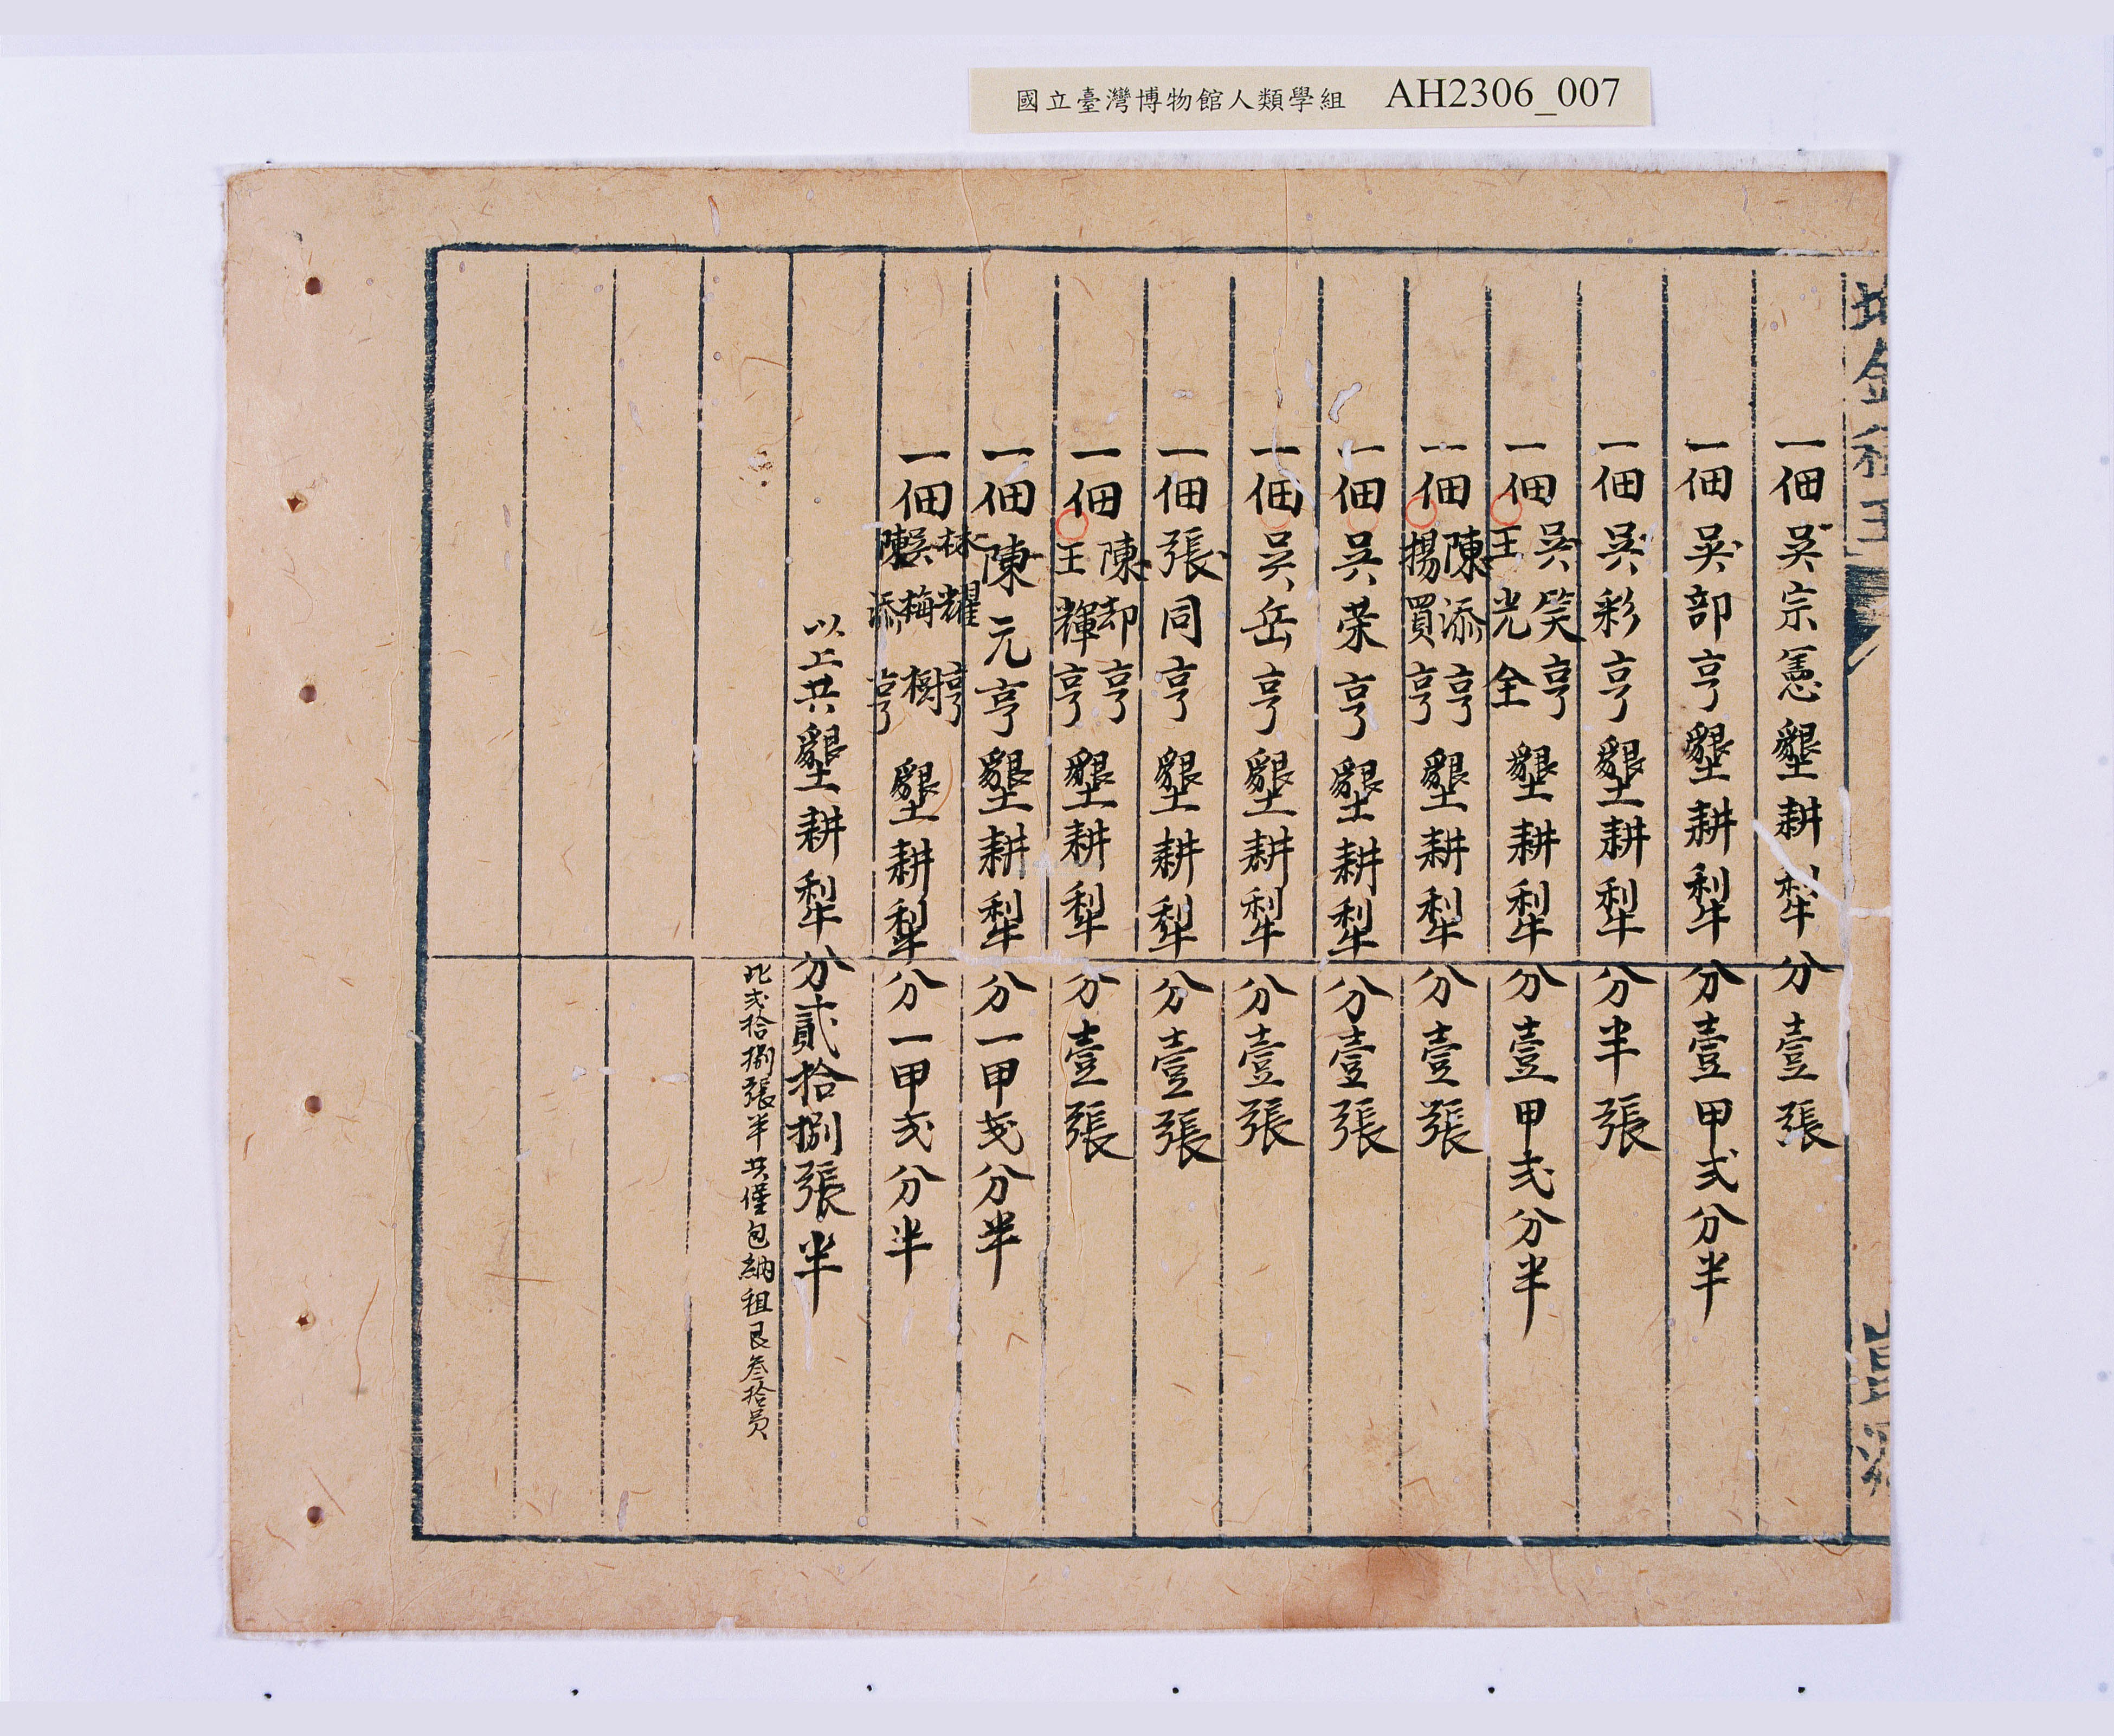 國立臺灣博物館人類學組 AH2306_007
一佃吳宗憲墾耕犁分壹張
一佃吳部亨墾耕犁分壹甲弍分半
一佃吳彩亨墾耕犁分半張
一佃吳笑亨王光全墾耕犁分壹甲弍分半
一佃陳添亨楊買亨墾耕犁分壹張
一佃吳荣亨墾耕犁分壹張
一佃吳岳亨墾耕犁分壹張
一佃張同亨墾耕犁分壹張
一佃陳却亨王輝亨墾耕犁分壹張
一佃陳元亨墾耕犁分一甲弍分半
一佃林耀亨吳梅樹陳添亨墾耕犁分一甲弍分半
以上共墾耕犁分貳拾捌張半
此弍拾捌張半共僅包納租艮叁拾员